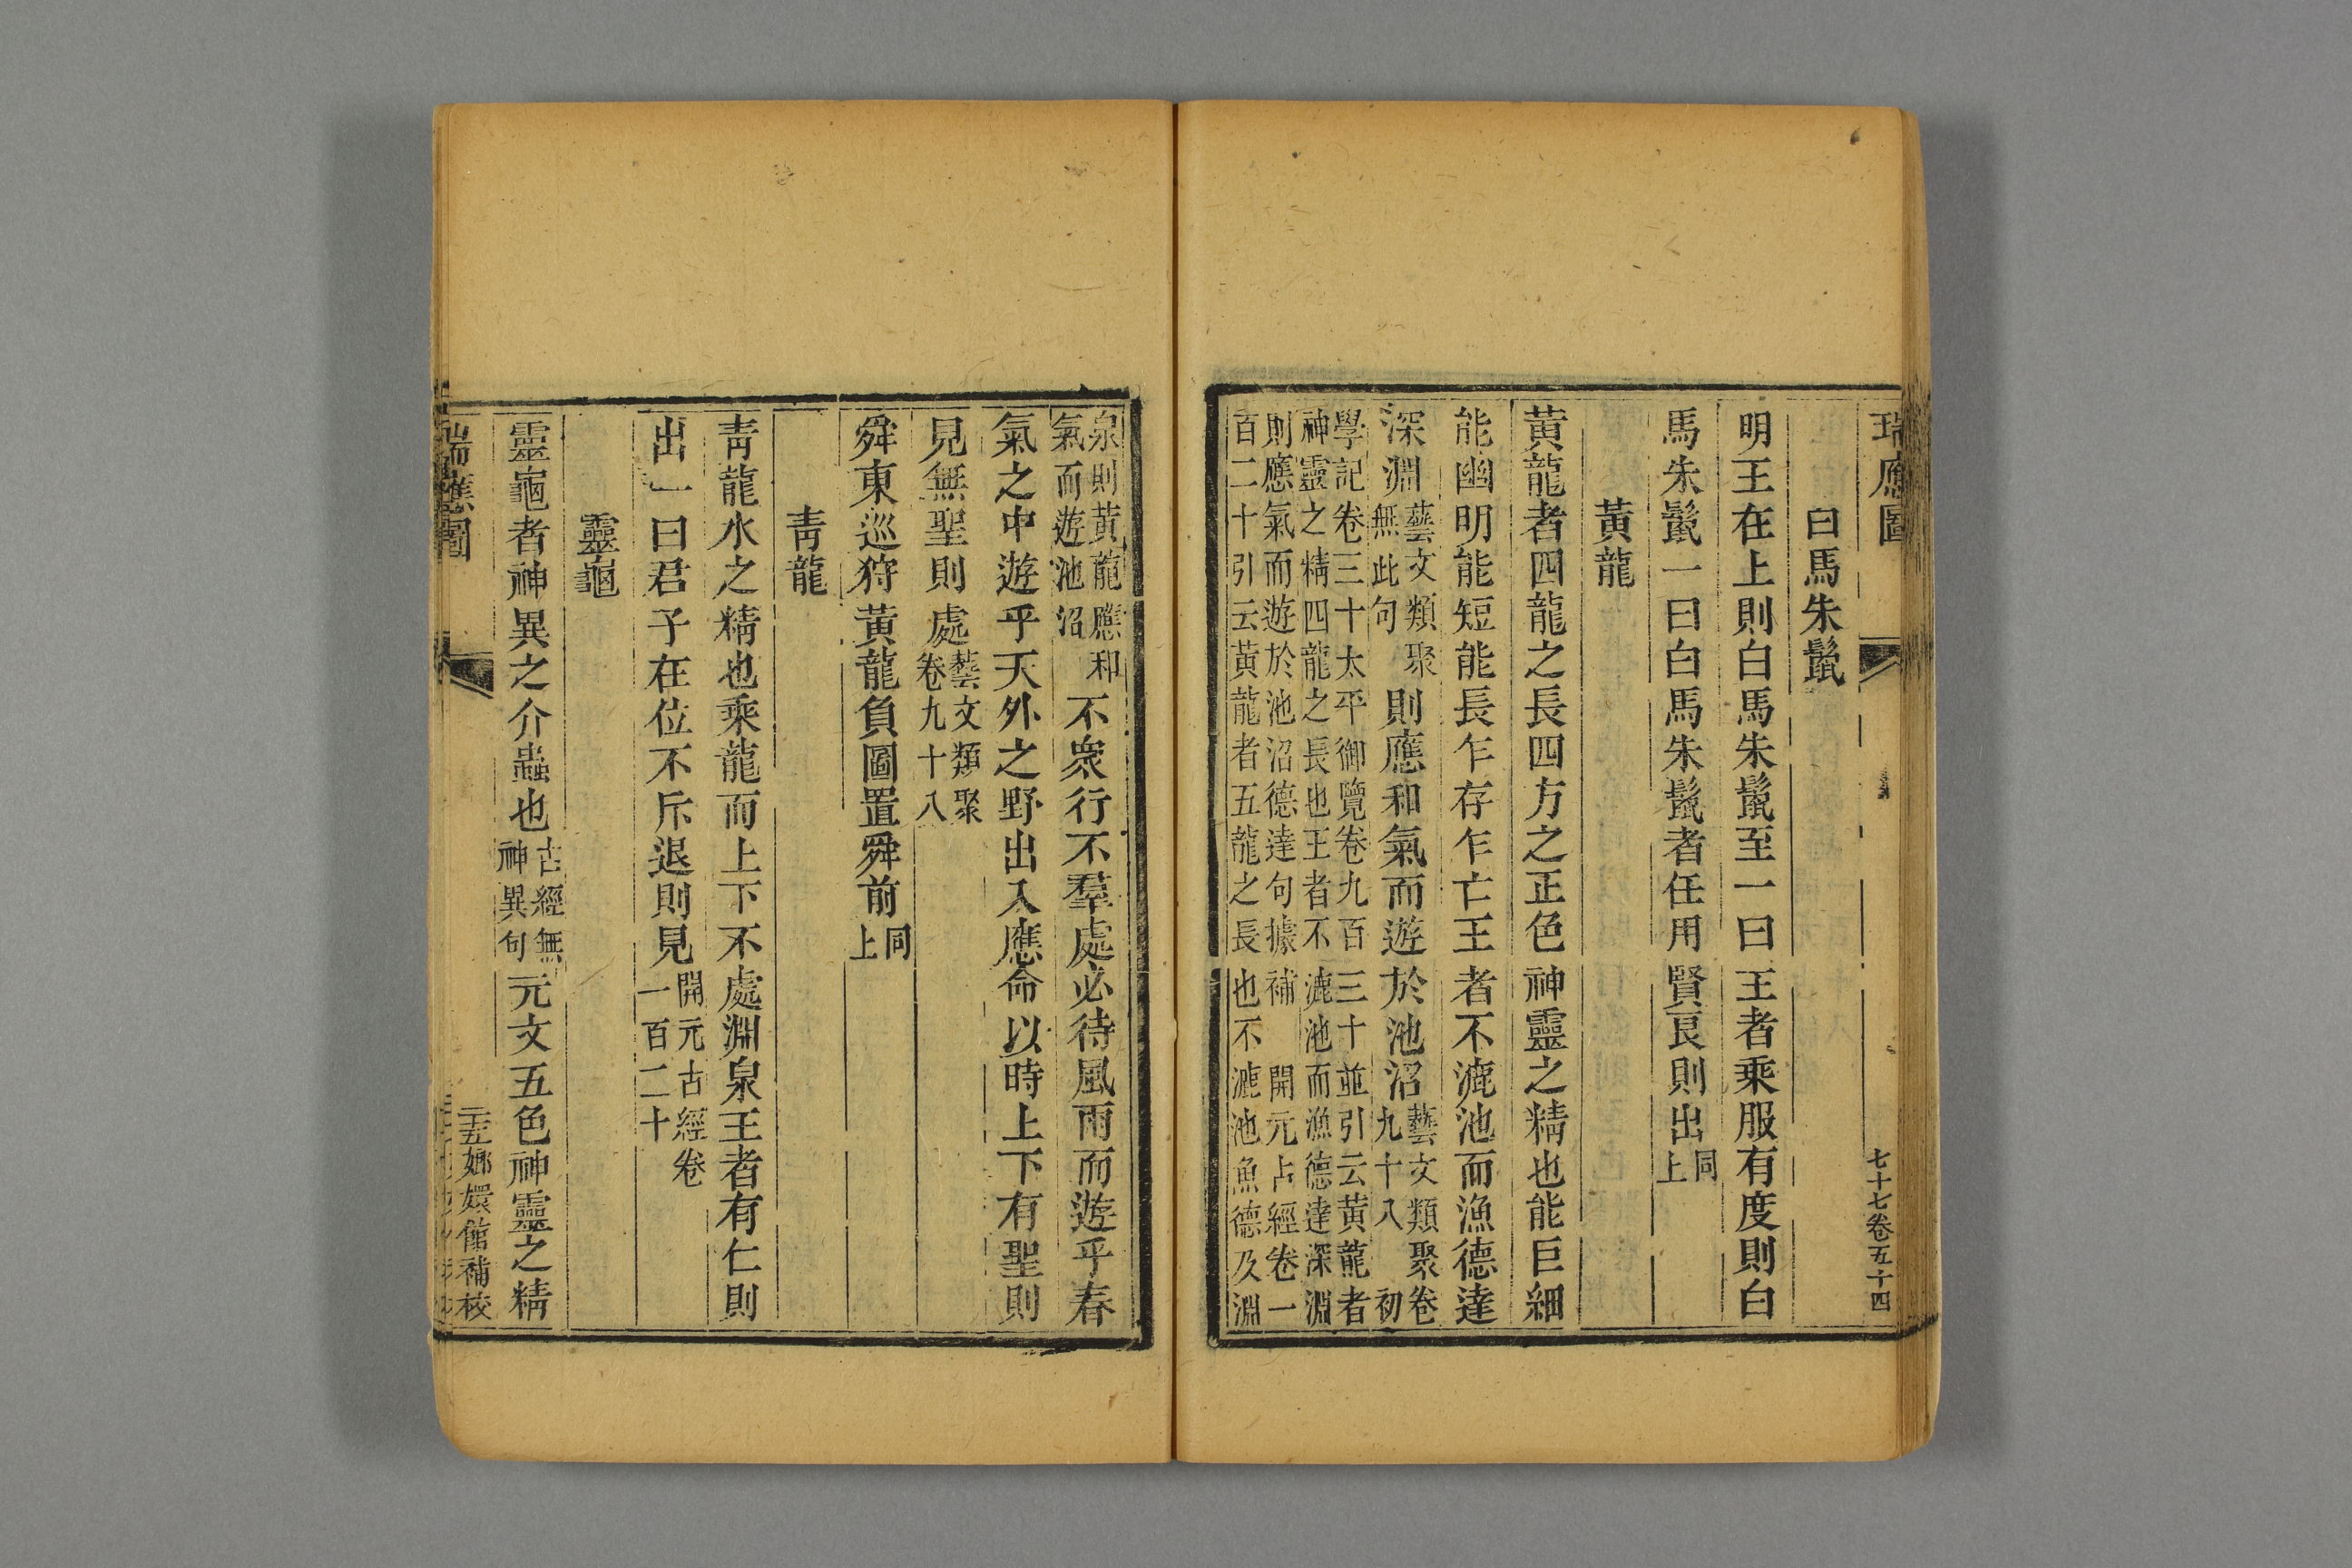 瑞應圖 七十七卷五十四
白馬朱鬣
明王在上則白馬朱鬣至一曰王者乘服有度則白
馬朱鬣一曰白馬朱鬣者任用賢良則出同上
黃龍
黃龍者四龍之長四方之正色神靈之精也能巨細
能幽明能短能長乍存乍亡王者不漉池而漁德達
深淵藝文類聚無此句則應和氣而遊於池沼藝文類聚卷九十八 初
學記卷三十太平御覽卷九百三十並引云黃龍者
神靈之精四龍之長也王者不漉池而漁德達深淵
則應氣而遊於池沼德達句據補 開元占經卷一
百二十引云黃龍者五龍之長也不漉池魚德及淵
泉則黃龍應和
氣而遊池沼不衆行不羣處必待風雨而遊乎春
氣之中遊乎天外之野出入應命以時上下有聖則
見無聖則處藝文類聚卷九十八
舜東巡狩黃龍負圖置舜前同上
青龍
青龍水之精也乘龍而上下不處淵泉王者有仁則
出一曰君子在位不斥退則見開元占經卷一百二十
靈龜
靈龜者神異之介蟲也古經無神異句元文五色神靈之精
瑞應圖 嫏嬛館補校